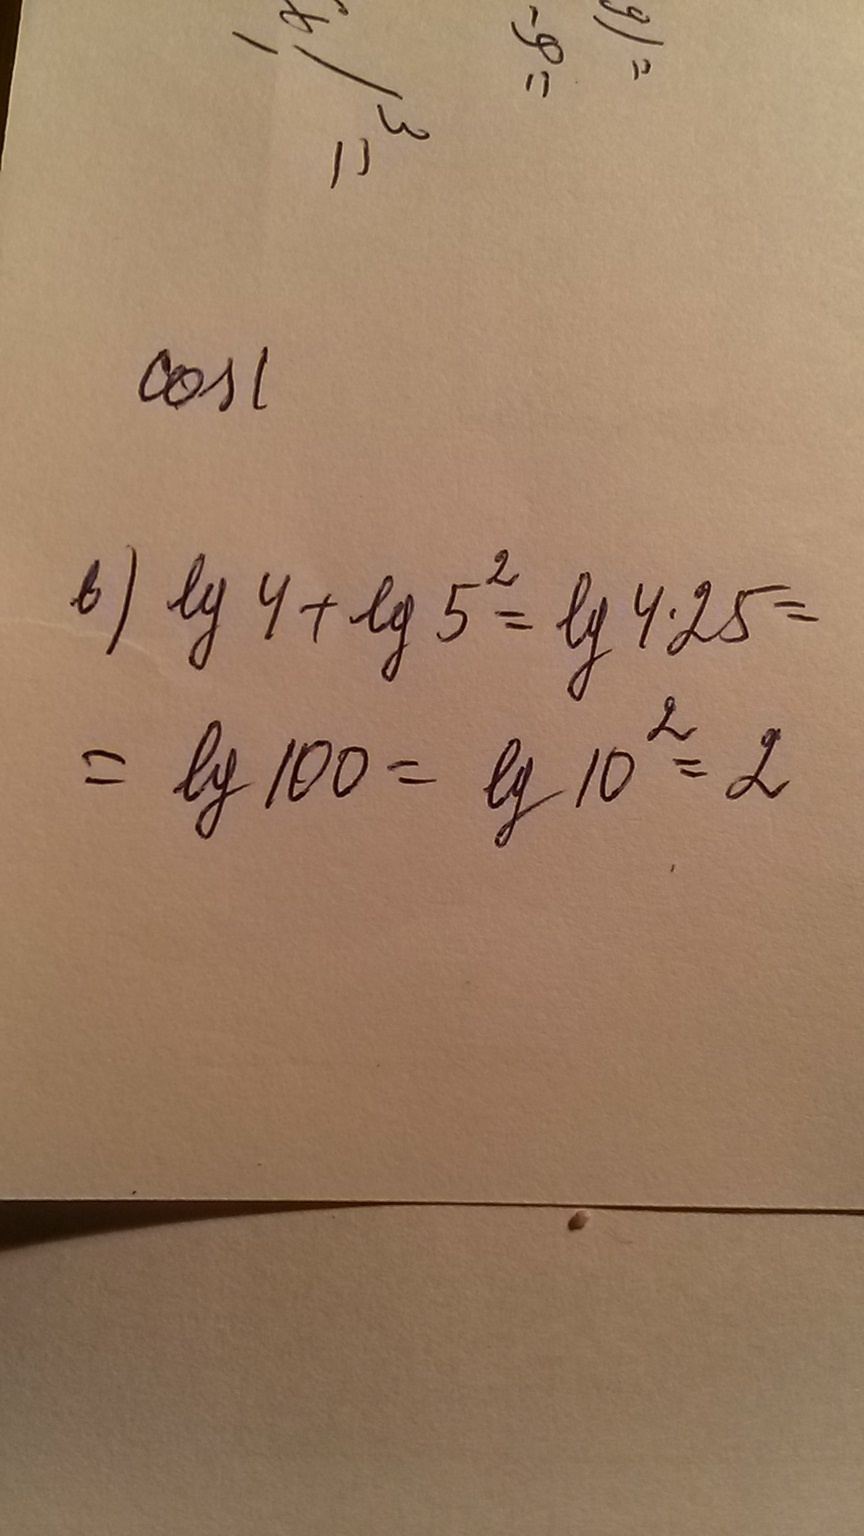 cos 1
в) lg 4 + lg 5² = lg 4·25 =
= lg 100 = lg 10² = 2